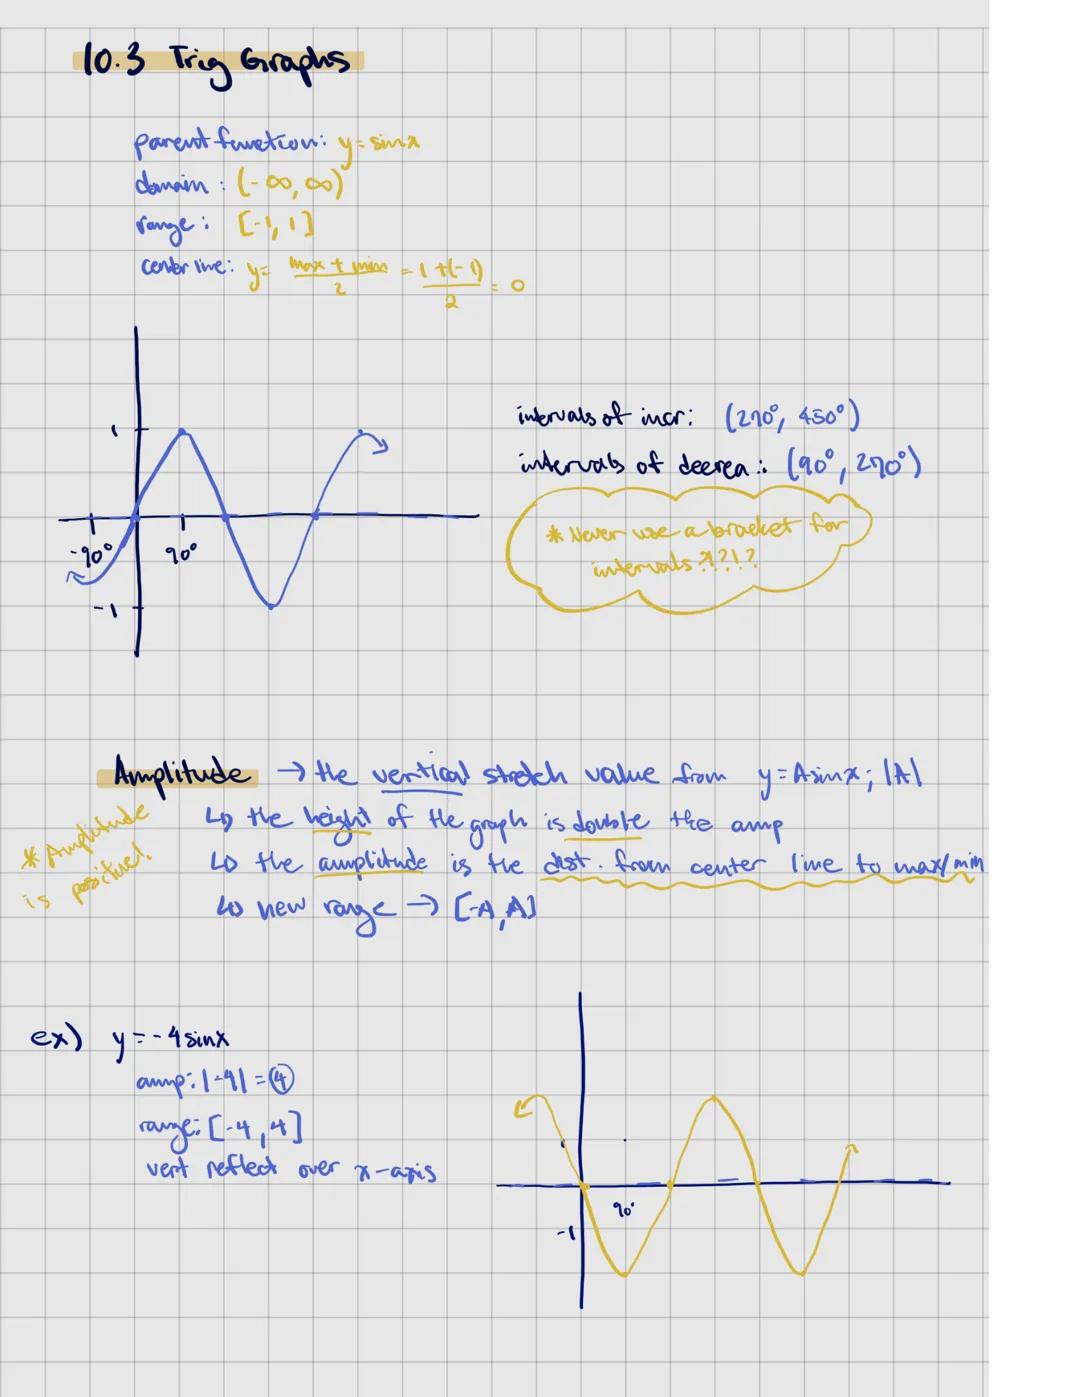 10.3 Trig Graphs
parent function: y = sinx
domain : (-∞, ∞)
range : [-1, 1]
center line: y = max + min / 2 = 1 + (-1) / 2 = 0
1
-90° 90°
-1
intervals of incr: (270°, 450°)
intervals of decrea.: (90°, 270°)
* Never use a bracket for
intervals?!?!?
Amplitude → the vertical stretch value from y = Asinx; |A|
↳ the height of the graph is double the amp
↳ the amplitude is the dist. from center line to max/min
↳ new range → [-A, A]
* Amplitude
is positive!
ex) y = -4sinx
amp: |-4| = 4
range: [-4, 4]
vert reflect over x-axis
90°
-1